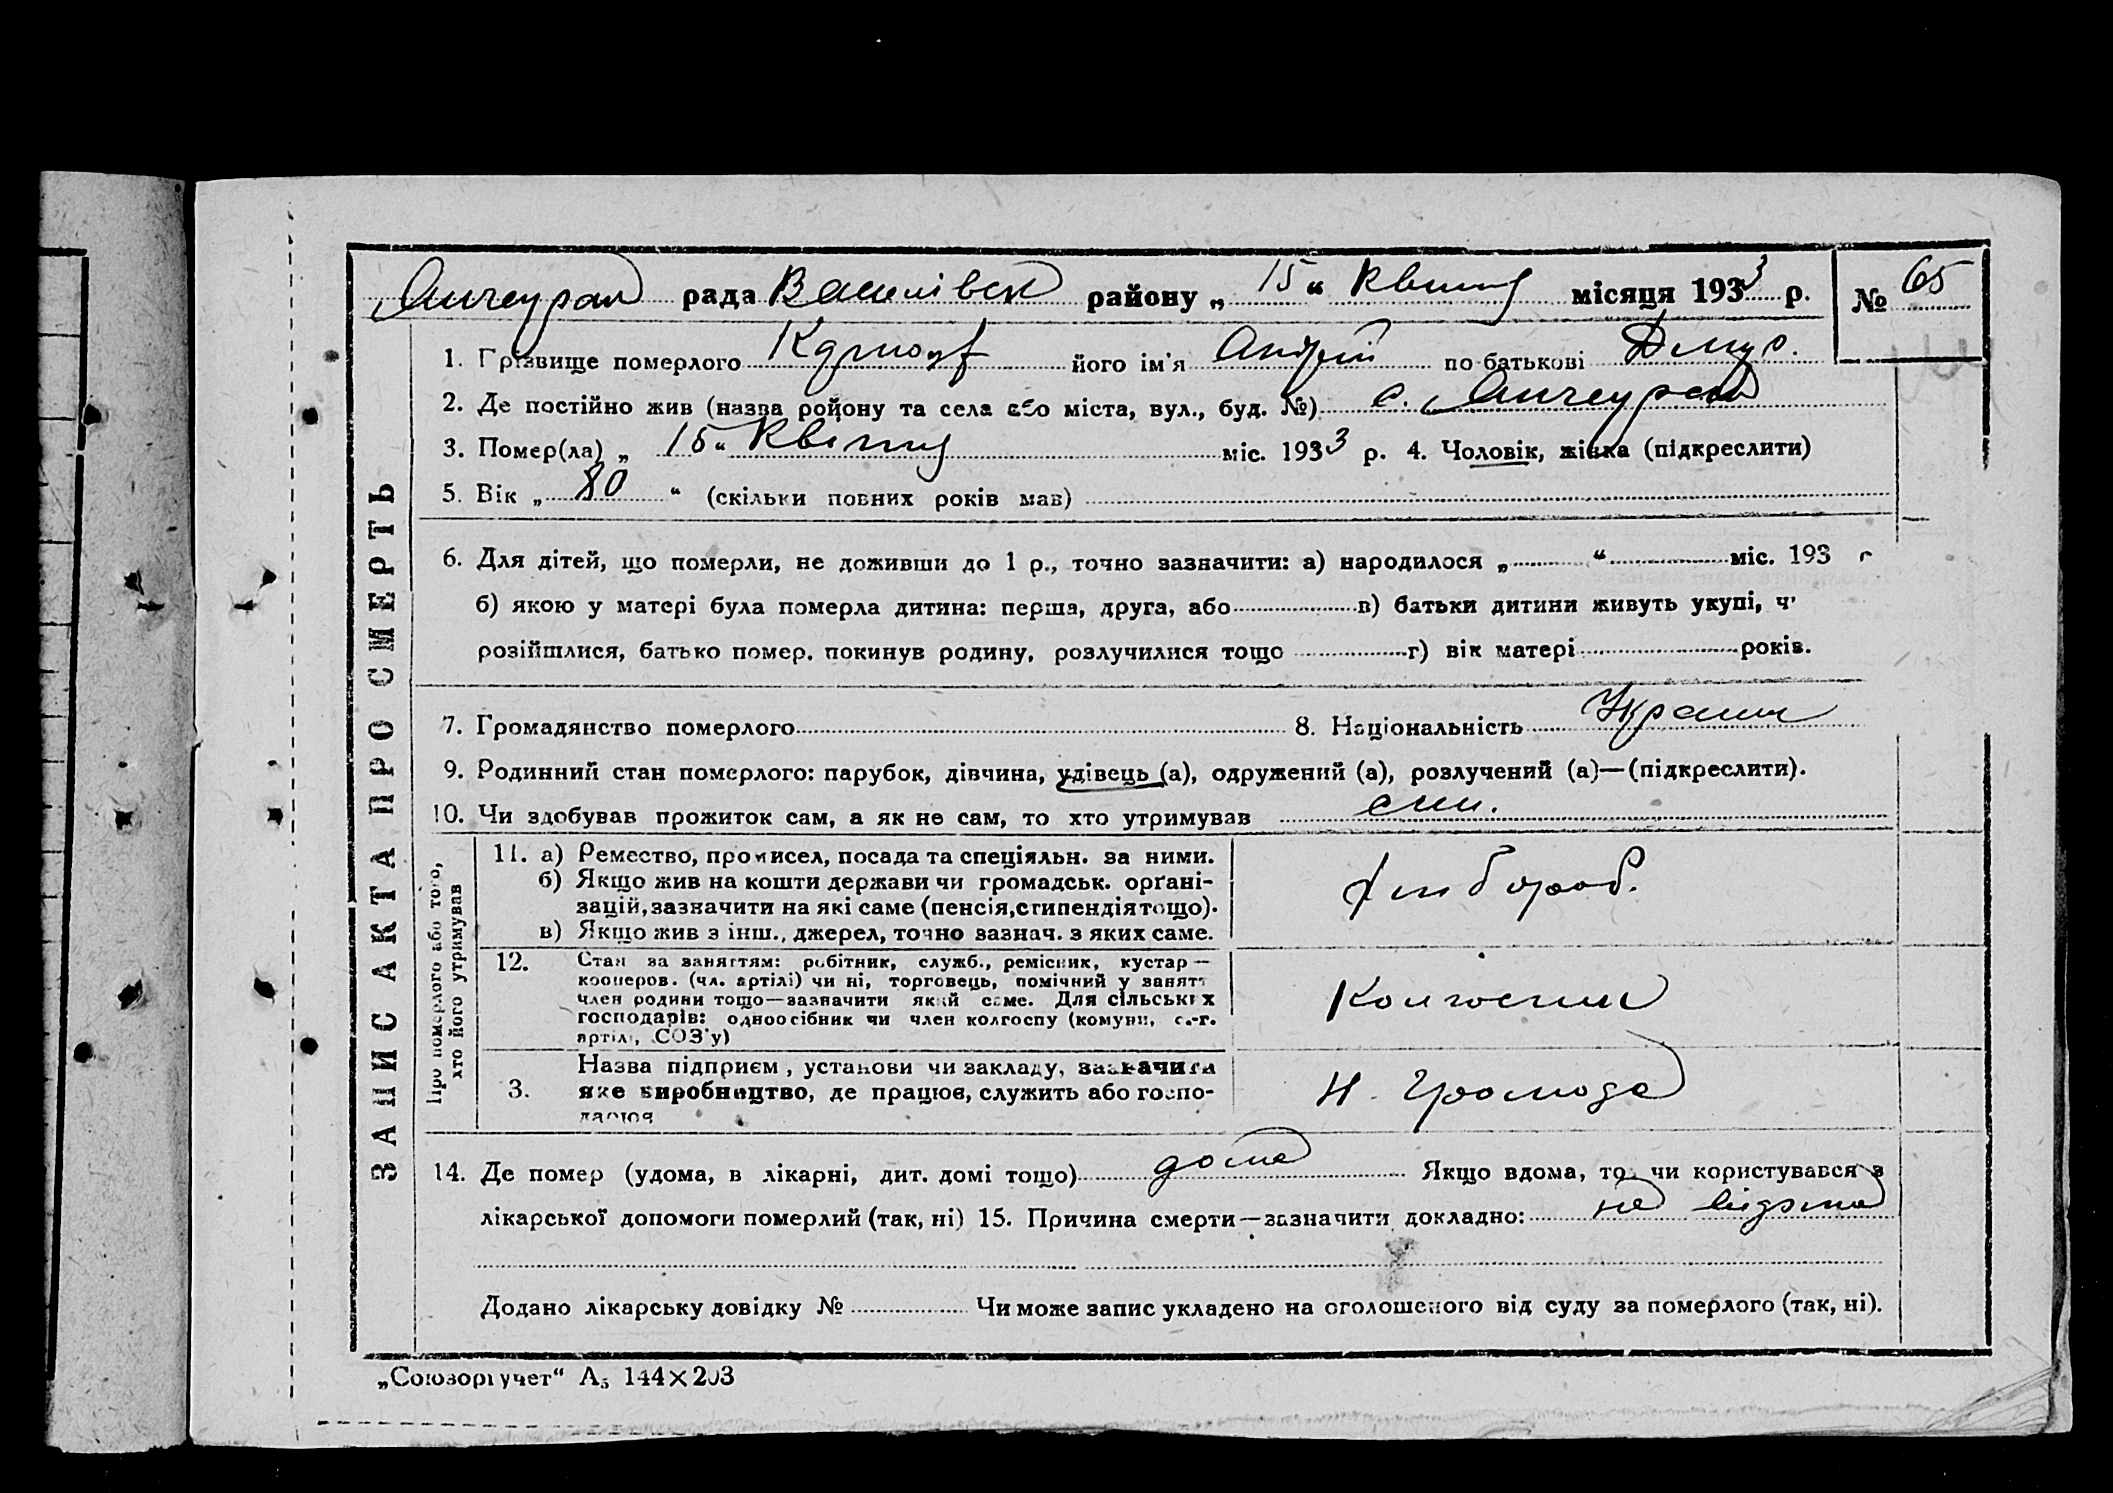 рада Василівск району „ 15 “ Квітня місяця 1933 р. № 65
1. Прізвище померлого його ім'я Андрій по-батькові Дмитр.
2. Де постійно жив (назва району та села або міста, вул., буд. №) с.
3. Помер(ла) „ 15 “ Квітня міс. 1933 р. 4. Чоловік, жінка (підкреслити)
5. Вік „ 80 “ (скільки повних років мав)
6. Для дітей, що померли, не доживши до 1 р., точно зазначити: а) народилося „ “ міс. 193
б) якою у матері була померла дитина: перша, друга, або в) батьки дитини живуть укупі, ч
розійшлися, батько помер, покинув родину, розлучилися тощо г) вік матері років.
7. Громадянство померлого 8. Національність Украин
9. Родинний стан померлого: парубок, дівчина, удівець (а), одружений (а), розлучений (а)—(підкреслити).
10. Чи здобував прожиток сам, а як не сам, то хто утримував син.
ЗАПИС АКТА ПРО СМЕРТЬ
Про померлого або того,
хто його утримував
11. а) Ремество, промисел, посада та спеціяльн. за ними.
б) Якщо жив на кошти держави чи громадськ. орґані-
зацій, зазначити на які саме (пенсія, стипендія тощо).
в) Якщо жив з інш., джерел, точно зазнач. з яких саме.
хлібороб.
12. Стан за заняттям: робітник, служб., ремісник, кустар—
кооперов. (чл. артілі) чи ні, торговець, помічний у занятт
член родини тощо—зазначити який саме. Для сільських
господарів: одноосібник чи член колгоспу (комуни, с.-г.
артілі, СОЗ'у)
Колгоспник
3. Назва підприєм, установи чи закладу, зазначити
яке виробництво, де працює, служить або госпо-
дарює
Н. Громада
14. Де помер (удома, в лікарні, дит. домі тощо) дома Якщо вдома, то чи користувався з
лікарської допомоги померлий (так, ні) 15. Причина смерти—зазначити докладно: не відома
Додано лікарську довідку № Чи може запис укладено на оголошеного від суду за померлого (так, ні).
„Союзоргучет“ А5 144×203